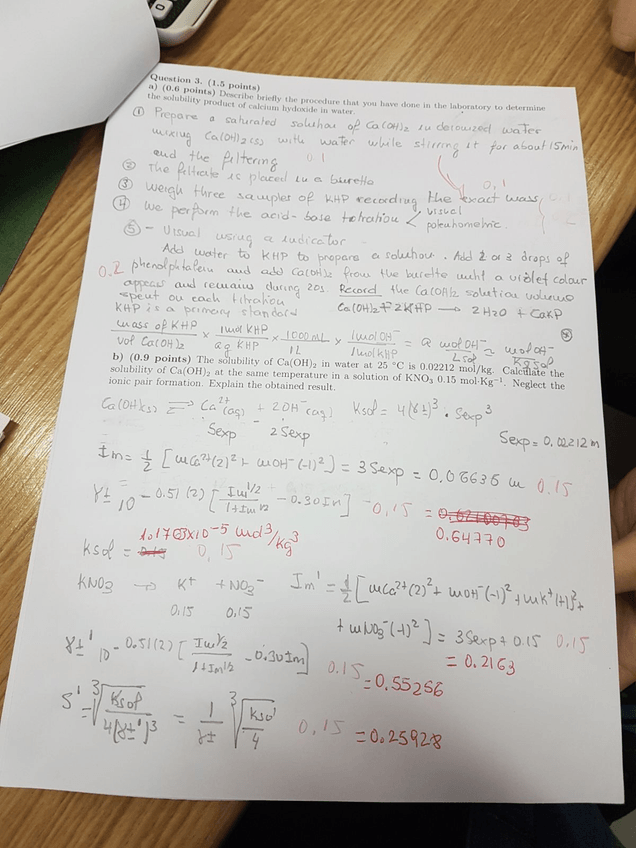 Question 3. (1.5 points)
a) (0.6 points) Describe briefly the procedure that you have done in the laboratory to determine
the solubility product of calcium hydoxide in water.
① Prepare a saturated solution of Ca(OH)₂ in deionized water
mixing Ca(OH)₂(s) with water while stirring it for about 15 min
and the filtering 0.1
② The filtrate is placed in a burette
③ Weigh three samples of KHP recording the exact mass 0,1
④ We perform the acid-base titration < visual
potentiometric.
⑤ - Visual using a indicator
Add water to KHP to prepare a solution. Add 2 or 3 drops of
0.2 phenolphtalein and add Ca(OH)₂ from the burette until a violet colour
appears and remains during 20s. Record the Ca(OH)₂ solution volume
spent on each titration Ca(OH)₂ + 2KHP → 2H₂O + CaKP
KHP is a primary standard
mass of KHP / vol Ca(OH)₂ × 1mol KHP / ag KHP × 1000mL / 1L × 1mol OH⁻ / 1mol KHP = a mol OH⁻ / L sol ≈ mol OH⁻ / Kg sol
b) (0.9 points) The solubility of Ca(OH)₂ in water at 25 °C is 0.02212 mol/kg. Calculate the
solubility of Ca(OH)₂ at the same temperature in a solution of KNO₃ 0.15 mol·Kg⁻¹. Neglect the
ionic pair formation. Explain the obtained result.
Ca(OH)₂(s) ⇌ Ca²⁺(aq) + 2OH⁻(aq) Ksol = 4(γ±)³ · Sexp³
Sexp 2Sexp Sexp = 0,02212 m
Im = 1/2 [mCa²⁺(2)² + mOH⁻(-1)²] = 3Sexp = 0,06636 m 0.15
γ± = 10 - 0.51(2) [Im^1/2 / 1+Im^1/2 - 0.30Im] 0,15 =
0.64770
Ksol = 1.1763x10⁻⁵ mol³/kg³
0,15
KNO₃ → K⁺ + NO₃⁻ Im' = 1/2 [mCa²⁺(2)² + mOH⁻(-1)² + mK⁺(+1)² +
0.15 0.15
+ mNO₃⁻(-1)²] = 3Sexp + 0.15 0.15
= 0.2163
γ±' 10 - 0.51(2) [Im^1/2 / 1+Im^1/2 - 0.30Im] 0.15
= 0.55256
S' = ³√(Ksol / 4(γ±')³) = 1/γ± ³√(Ksol / 4) 0,15 = 0.25928